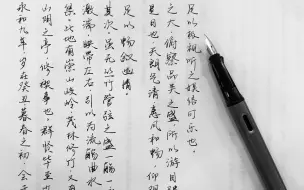 永和九年,岁在癸丑,暮春之初,会于
山阴之亭,修禊事也。群贤毕至
集。此地有崇山峻岭,茂林修竹,又有
激湍,映带左右,引以为流觞曲水
其次。虽无丝竹管弦之盛,一觞一
足以畅叙幽情。
是日也,天朗气清,惠风和畅,仰观
之大,俯察品类之盛,所以游目骋
足以极视听之娱,信可乐也。